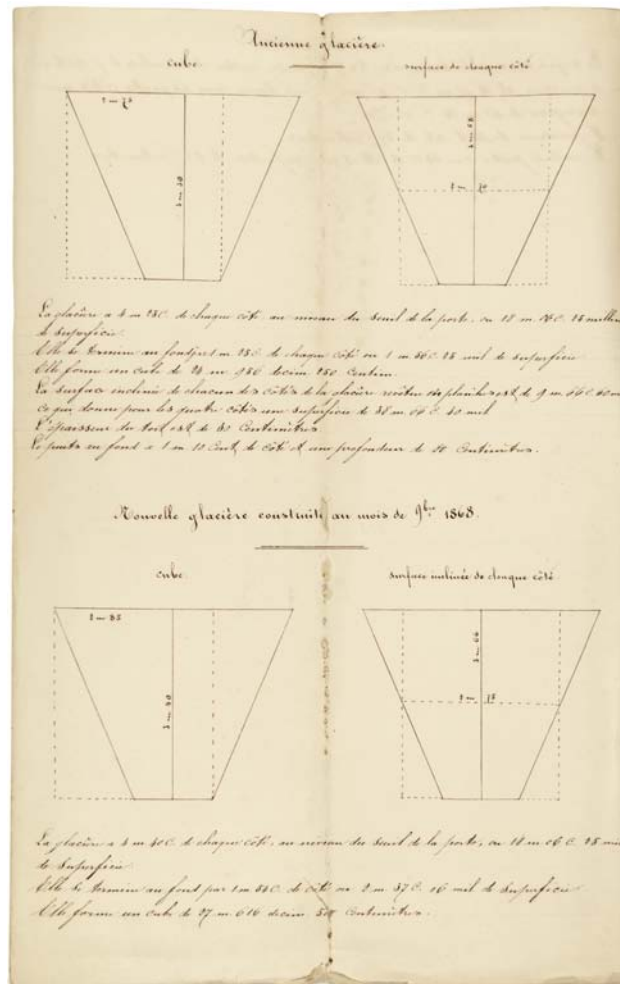 Ancienne glacière.
cube
surface de chaque côté
2 m 75
3 m 50
3 m 68
2 m 75
La glacière a 4 m 25 C. de chaque côté au niveau du seuil de la porte, ou 18 m. 06 C. 25 mill
de Superficie.
Elle se termine au fond par 1 m 25 C. de chaque côté ou 1 m 56 C. 25 mil de Superficie
Elle forme un cube de 24 m 986 décim 250 Centim.
La surface inclinée de chacun des côtés de la glacière revêtu en planches est de 9 m 66 C. 60
ce qui donne pour les quatre côtés une superficie de 38 m 66 C. 40 mil
L'épaisseur du toit est de 80 Centimètres
Le puits au fond a 1 m 10 Cent. de côté et une profondeur de Centimètres.
Nouvelle glacière construite au mois de 9bre 1868.
cube.
surface inclinée de chaque côté
2 m 85
3 m 40
3 m 66
2 m 75
La glacière a 4 m C. de chaque côté, au niveau du seuil de la porte, ou 18 m. 06 C. 25
de Superficie
Elle se termine au fond par 1 m 54 C. de côté ou 2 m. 37 C. 16 mil de Superficie
Elle forme un cube de 27 m 616 décim Centimètres.